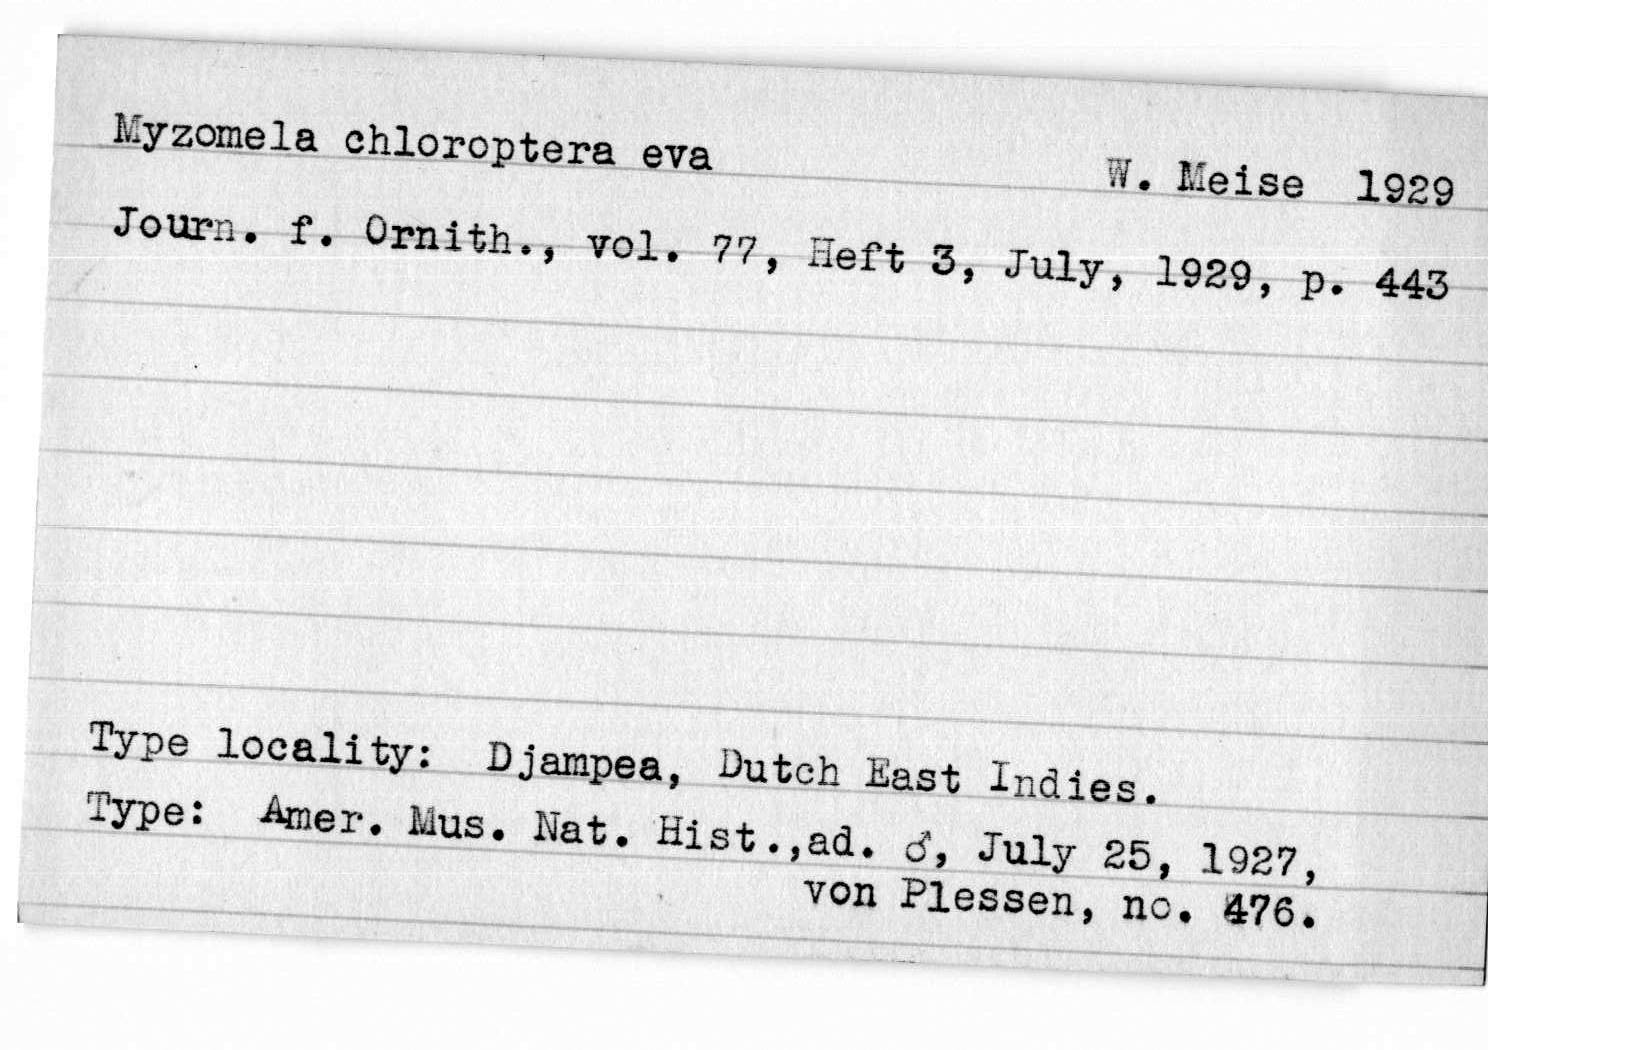 Myzomela chloroptera eva W. Meise 1929
Journ. f. Ornith., vol. 77, Heft 3, July, 1929, p. 443
Type locality: Djampea, Dutch East Indies.
Type: Amer. Mus. Nat. Hist.,ad. ♂, July 25, 1927,
von Plessen, no. 476.